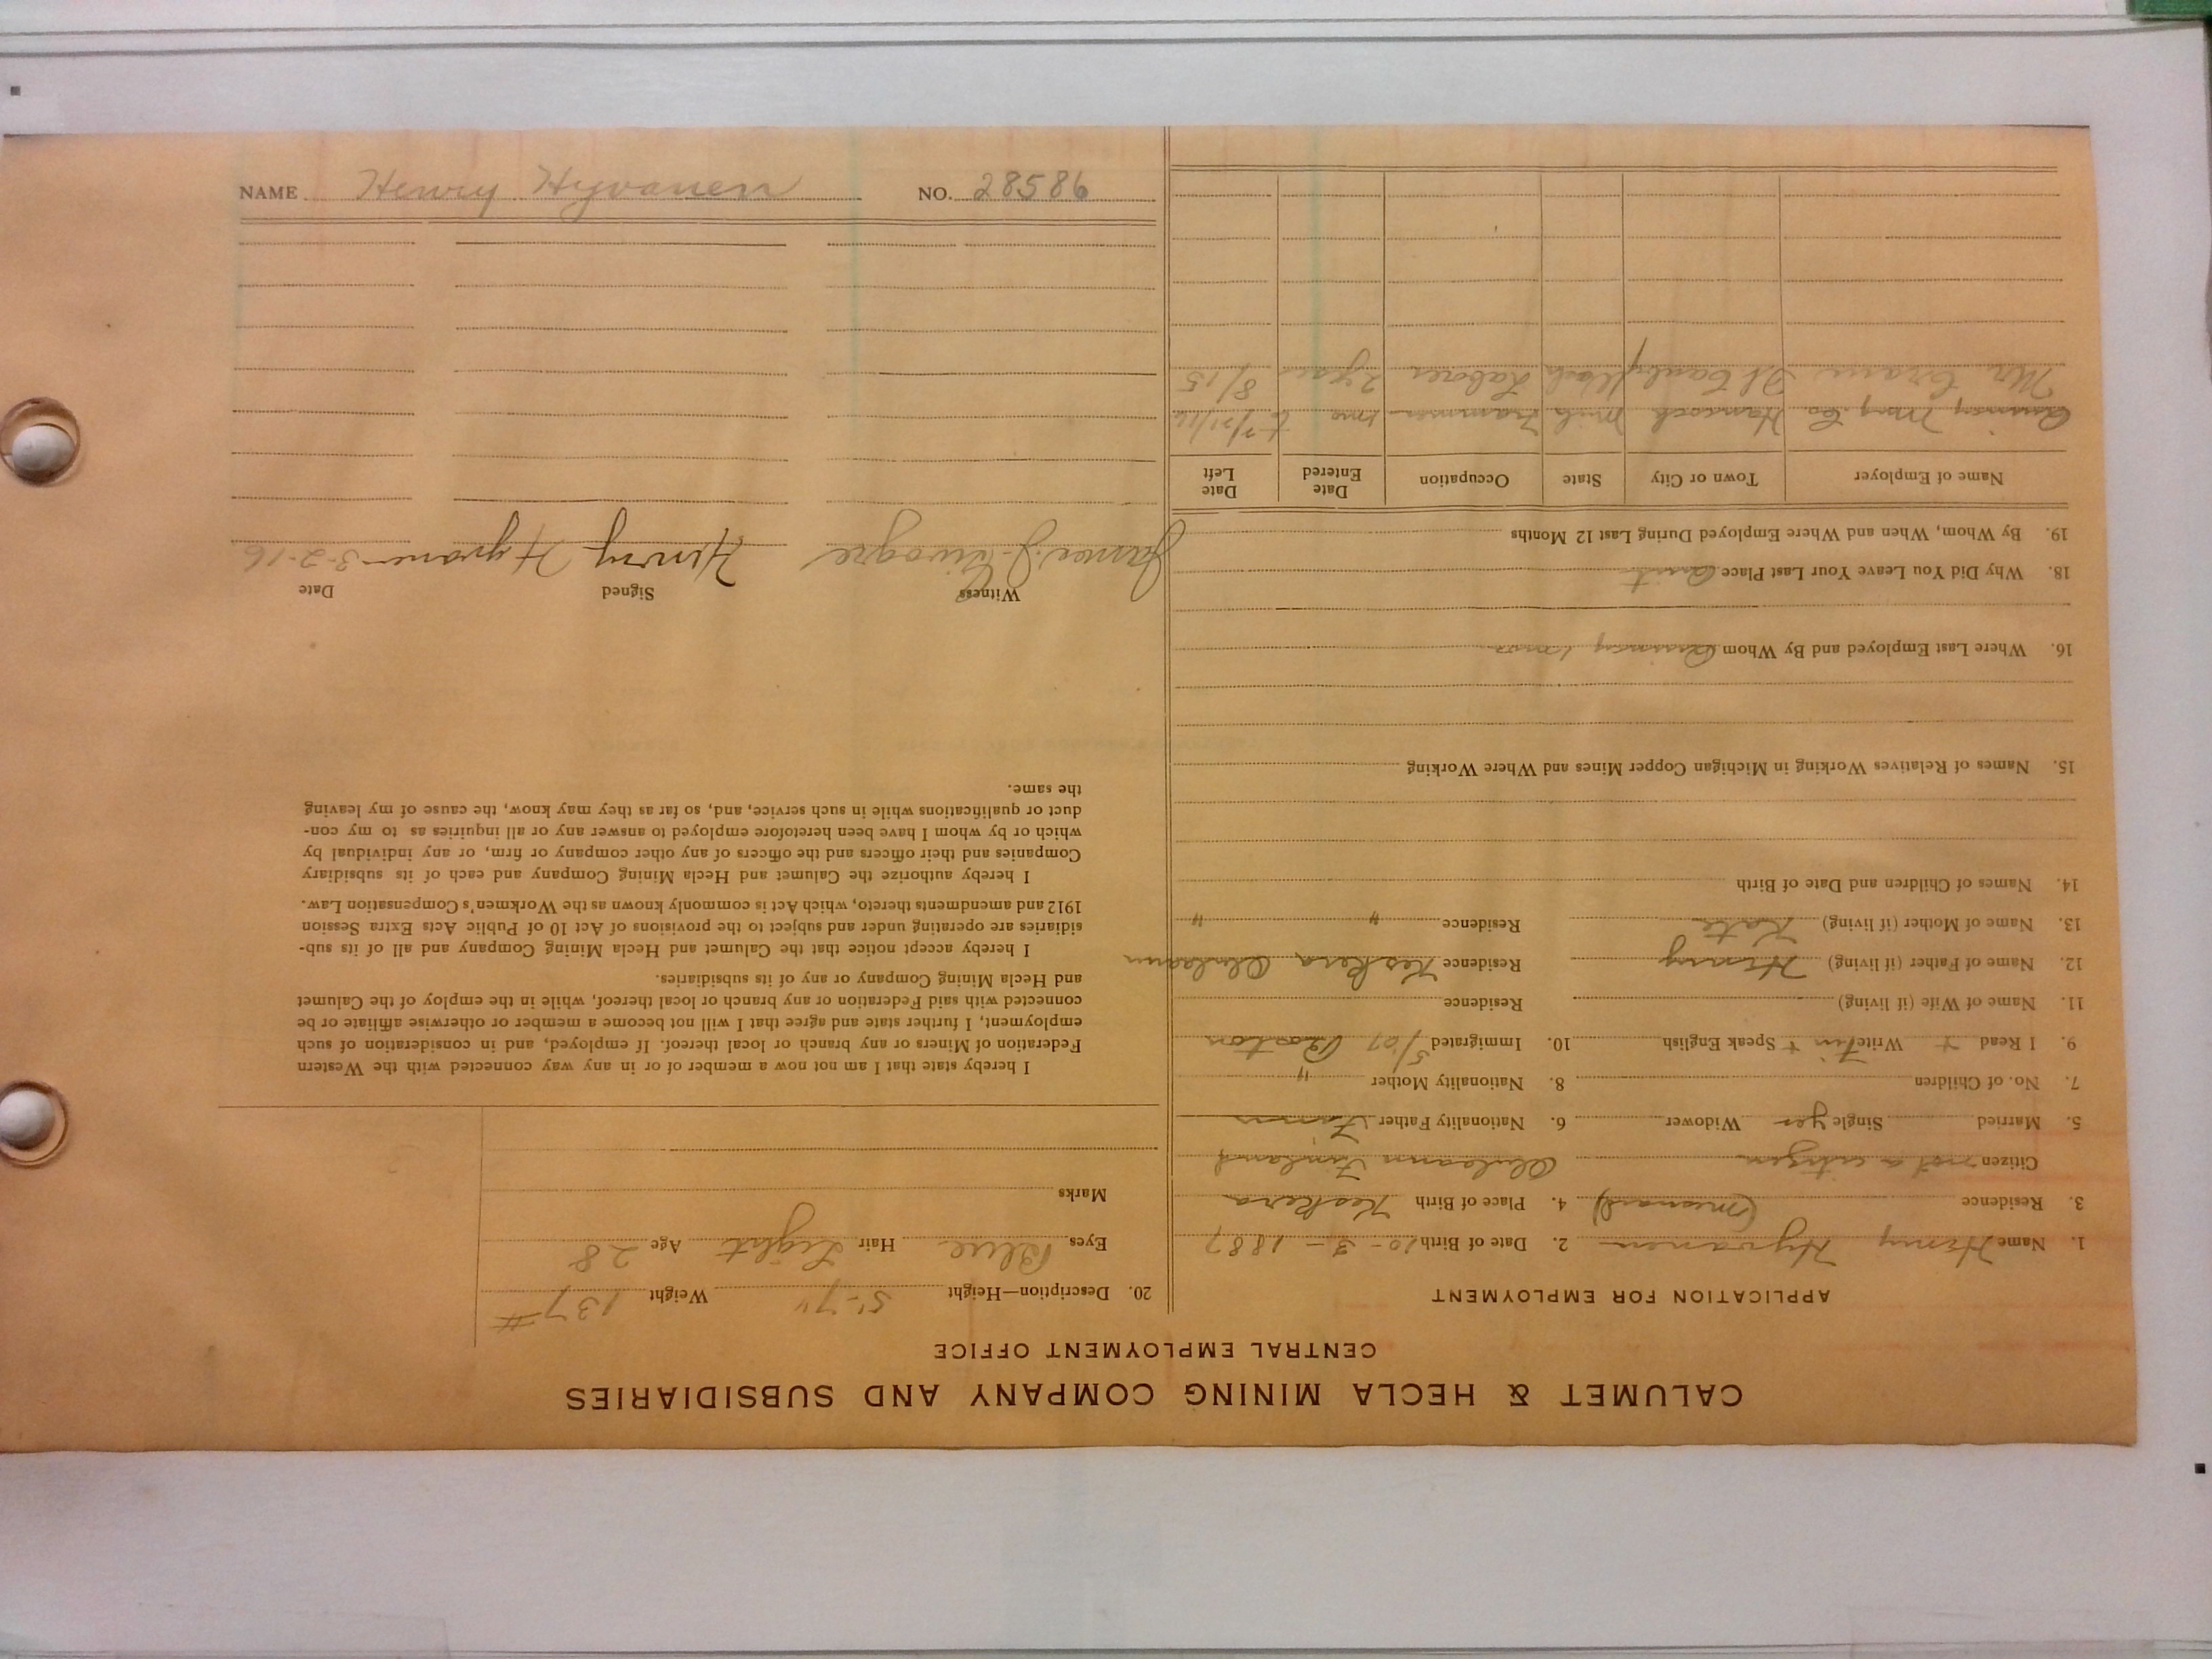 CALUMET & HECLA MINING COMPANY AND SUBSIDIARIES
CENTRAL EMPLOYMENT OFFICE
APPLICATION FOR EMPLOYMENT
1. Name Henry Hyvanen 2. Date of Birth 10-3-1887
3. Residence 4. Place of Birth Keskera
Citizen not a citizen Finland
5. Married Single yes Widower 6. Nationality Father
7. No. of Children 8. Nationality Mother "
9. I Read Write Fin Speak English 10. Immigrated 5/07 Boston
11. Name of Wife (if living) Residence
12. Name of Father (if living) Henry Residence Keskera
13. Name of Mother (if living) Kate Residence " "
14. Names of Children and Date of Birth
15. Names of Relatives Working in Michigan Copper Mines and Where Working
16. Where Last Employed and By Whom Quincy 1 mo
18. Why Did You Leave Your Last Place Quit
19. By Whom, When and Where Employed During Last 12 Months
Name of Employer Town or City State Occupation Date Entered Date Left
Quincy Mng. Co. Hancock Mich Trammer 1 mo
Laborer 2 yrs 8/15
20. Description—Height 5'-7" Weight 137#
Eyes Blue Hair Light Age 28
Marks
I hereby state that I am not now a member of or in any way connected with the Western
Federation of Miners or any branch or local thereof. If employed, and in consideration of such
employment, I further state and agree that I will not become a member or otherwise affiliate or be
connected with said Federation or any branch or local thereof, while in the employ of the Calumet
and Hecla Mining Company or any of its subsidiaries.
I hereby accept notice that the Calumet and Hecla Mining Company and all of its sub-
sidiaries are operating under and subject to the provisions of Act 10 of Public Acts Extra Session
1912 and amendments thereto, which Act is commonly known as the Workmen's Compensation Law.
I hereby authorize the Calumet and Hecla Mining Company and each of its subsidiary
Companies and their officers and the officers of any other company or firm, or any individual by
which or by whom I have been heretofore employed to answer any or all inquiries as to my con-
duct or qualifications while in such service, and, so far as they may know, the cause of my leaving
the same.
Witness Signed Date
James J. Henry Hyvanen 3-2-16
NAME Henry Hyvanen NO. 28586